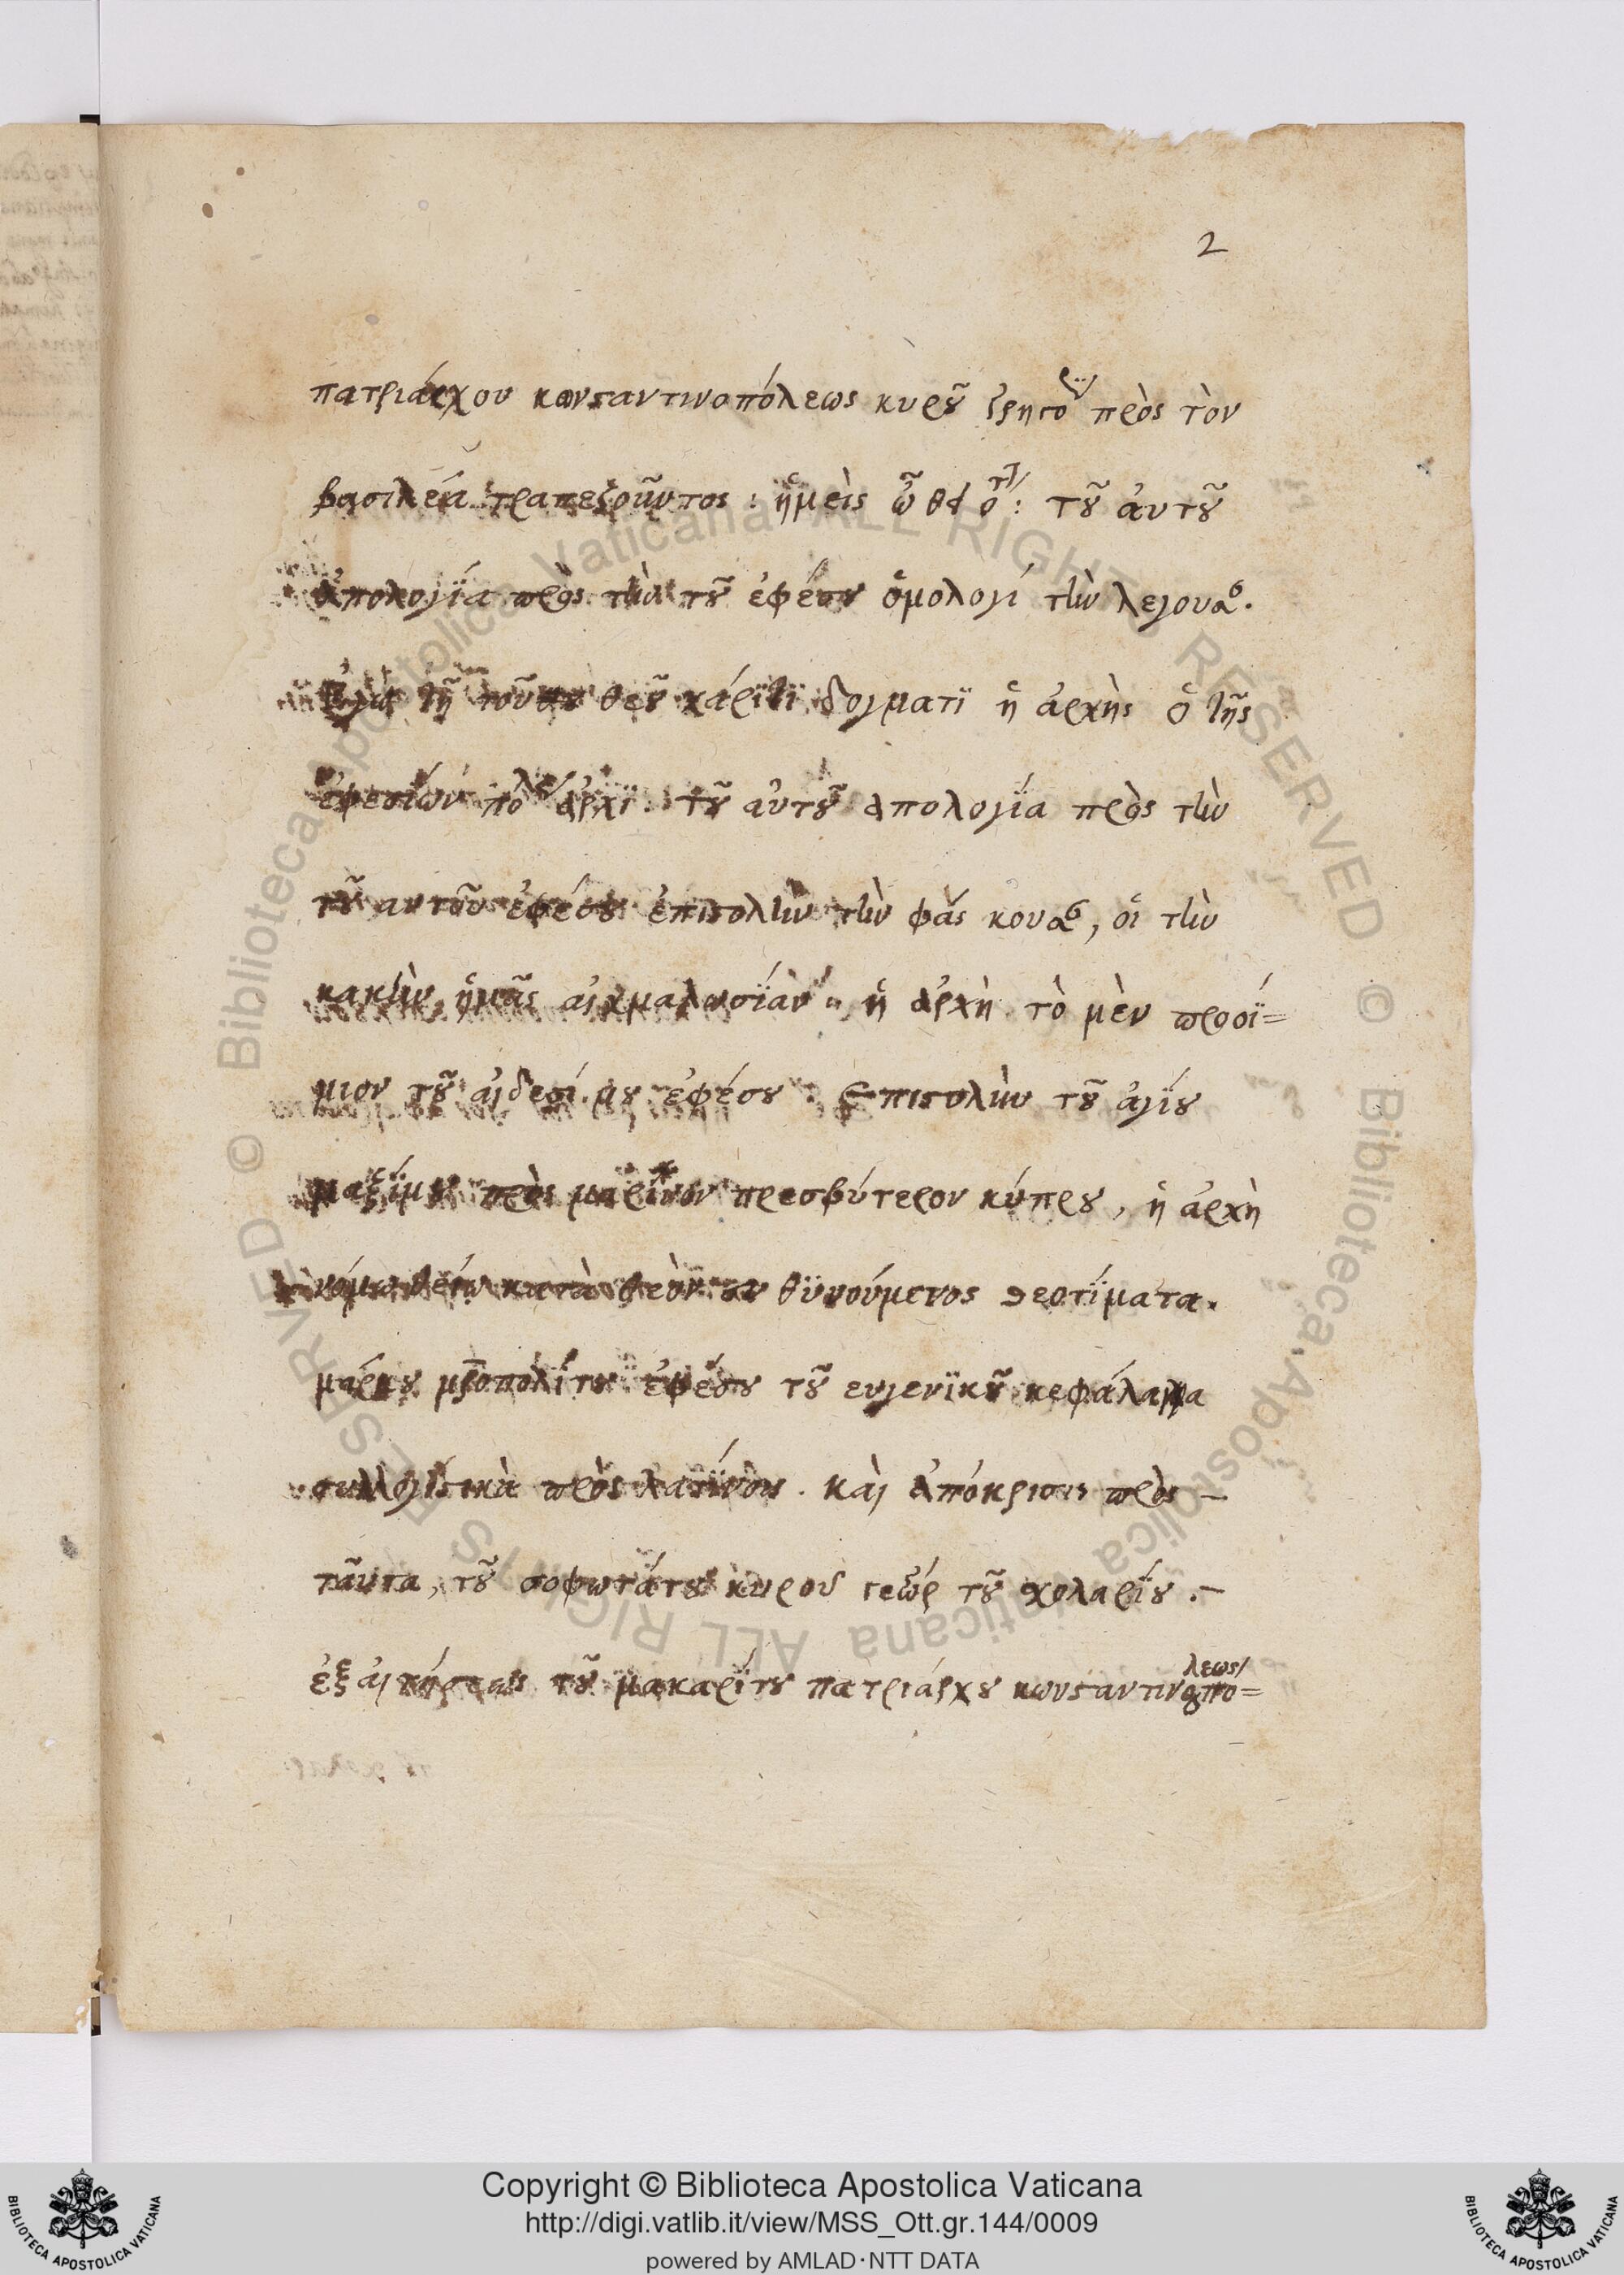 2
πατριάρχου κωνσταντινοπόλεως κυροῦ γρηγο πρὸς τὸν
βασιλέα τραπεζοῦντος : ἡμεὶς ὦ : τοῦ ἀυτοῦ
ἀπολογία πρὸς τὴν τοῦ ἐφέσου ὁμολογί τὴν λεγουσ.
Ἐγὼ τῆ τοῦ θεοῦ χάριτι δογματι ἡ ἀρχὴς ὁ τῆς
ἐφεσίων ἀρχι. τοῦ αὐτοῦ ἀπολογία πρὸς τὴν
τοῦ αυτοῦ ἐφέσου ἐπιστολὴν τὴν φάς κουσ, οἱ τὴν
κακὴν ἡμᾶς αἰχμαλωσίὰν .. ἡ ἀρχὴ τὸ μὲν προοί=
μιον τοῦ ἀιδεσί.μου ἐφέσου : Επιστολὴν τοῦ ἀγίου
μαξίμου πρὸς μαρῖνον πρεσβύτερον κύπρου, ἡ ἀρχὴ
νόμω θείω κατὰ θεὸν θϋνούμενος
μάρκου μροπολίτου ἐφέσου τοῦ ευγενϊκοῦ κεφάλαια
συλλογϊστικὰ πρὸς λατίνους. καὶ ἀπόκρισις πρὸς –
ταῦτα, τοῦ σοφωτάτου κυροῦ γεώρ τοῦ χολαρίου .–
ἐξ αἰτήσεως τοῦ μακαρίτου πατριάρχου κωνσταντινοπο=
λεως
Copyright © Biblioteca Apostolica Vaticana
http://digi.vatlib.it/view/MSS_Ott.gr.144/0009
powered by AMLAD·NTT DATA
BIBLIOTECA APOSTOLICA VATICANA
BIBLIOTECA APOSTOLICA VATICANA
© Biblioteca Apostolica Vaticana ALL RIGHTS RESERVED
© Biblioteca Apostolica Vaticana ALL RIGHTS RESERVED